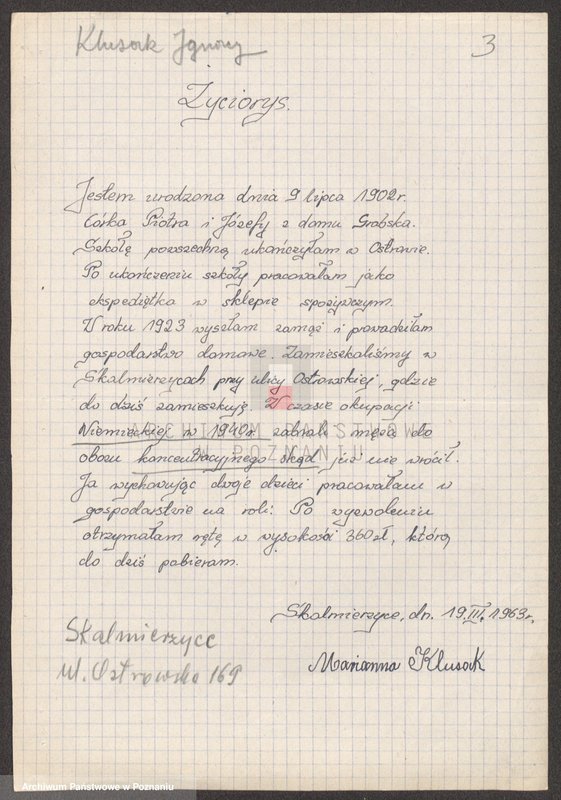 Klusak Ignacy
3
Życiorys.
Jestem urodzona dnia 9 lipca 1902r.
Córka Piotra i Józefy z domu Grabska.
Szkołę powszechną ukończyłam w Ostrowie.
Po ukończeniu szkoły pracowałam jako
ekspedjętka w sklepie spożywczym.
W roku 1923 wyszłam zamąż i prowadziłam
gospodarstwo domowe. Zamieszkaliśmy w
Skalmierzycach przy ulicy Ostrowskiej, gdzie
do dziś zamieszkuję. W czasie okupacji
Niemieckiej w 1940r. zabrali męża do
obozu koncentracyjnego skąd już nie wrócił.
Ja wychowując dwoje dzieci pracowałam w
gospodarstwie na roli. Po wyzwoleniu
otrzymałam rętę w wysokości 360 zł, którą
do dziś pobieram.
Skalmierzyce, dn. 19.III.1963r.
Marianna Klusak
Skalmierzyce
ul. Ostrowska 169
ARCHIWUM PAŃSTWOWE
W POZNANIU
Archiwum Państwowe w Poznaniu